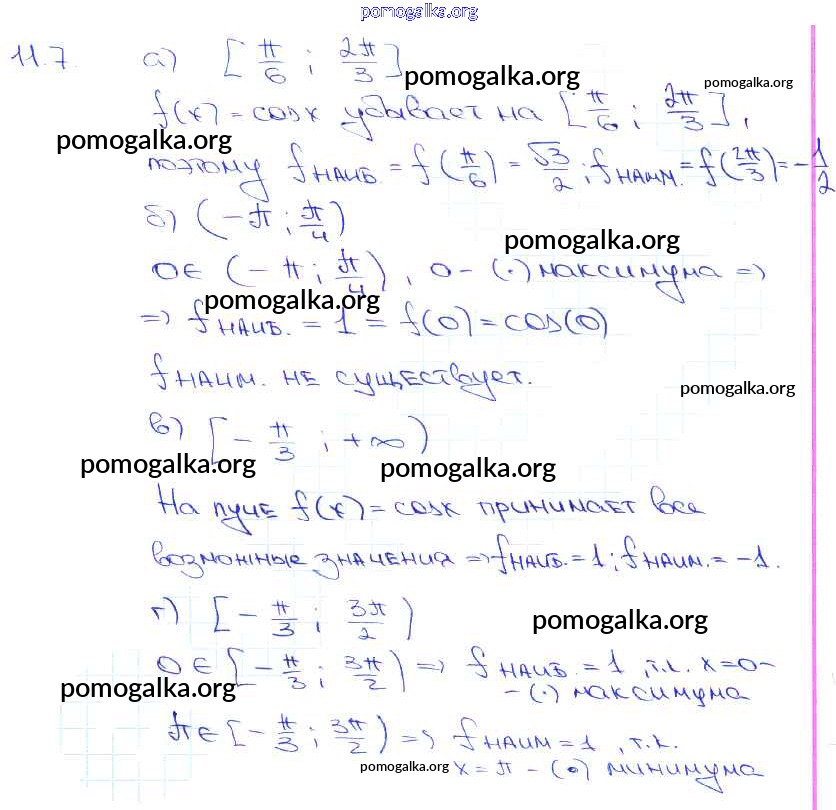 pomogalka.org
11.7. а) [π/6 ; 2π/3]
pomogalka.org
pomogalka.org
f(x) = cosx убывает на [π/6 ; 2π/3],
pomogalka.org
поэтому fнаиб. = f(π/6) = √3/2 ; fнаим. = f(2π/3) = -1/2
б) (-π ; π/4)
pomogalka.org
0 ∈ (-π ; π/4), 0 - (·) максимума =>
pomogalka.org
=> fнаиб. = 1 = f(0) = cos(0)
fнаим. не существует.
pomogalka.org
в) [-π/3 ; +∞)
pomogalka.org
pomogalka.org
На луче f(x) = cosx принимает все
возможные значения => fнаиб. = 1 ; fнаим. = -1.
г) [-π/3 ; 3π/2)
pomogalka.org
0 ∈ [-π/3 ; 3π/2) => fнаиб. = 1, т.к. x=0-
pomogalka.org
- (·) максимума
π ∈ [-π/3 ; 3π/2) => fнаим = 1, т.к.
pomogalka.org
x = π - (·) минимума